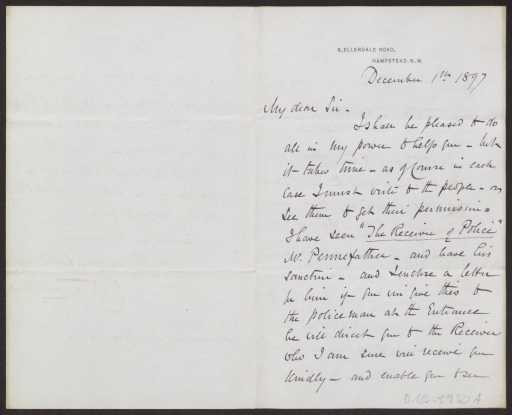 5, ELLERDALE ROAD,
HAMPSTEAD. N.W.
December 1st 1897
My dear Sir -
I shall be pleased to do
all in my power to help you - but
it takes time - as of Course in each
Case I must write to the people - or
see them to get their permission -
I have seen "The Receiver of Police"
Mr. Pennefather - and have his
sanction - and I enclose a letter
to him if you will give this to
the policeman at the Entrance
he will direct you to the Receiver
who I am sure will receive you
kindly - and enable you to see